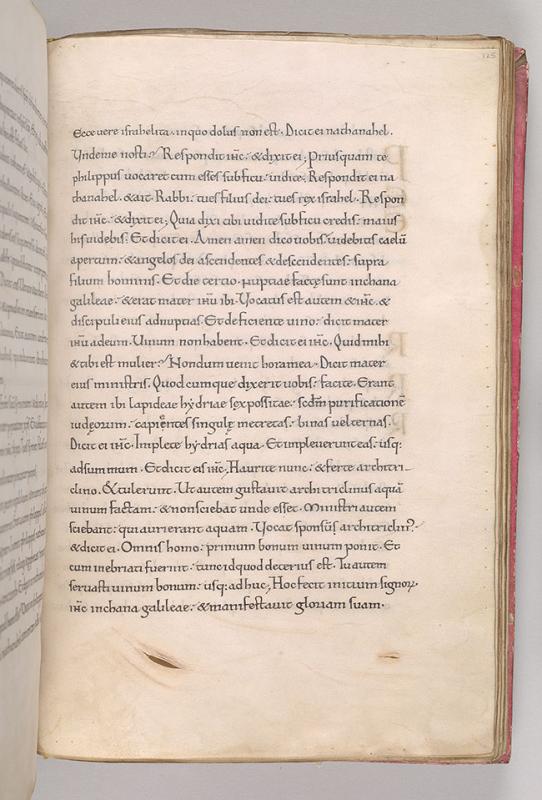 125
Ecce uere israhelita. in quo dolus non est. Dicit ei nathanahel.
Unde me nosti? Respondit ihc. & dixit ei; Priusquam te
philippus uocaret cum esses sub ficu: uidi te. Respondit ei na
thanahel. & ait. Rabbi. tu es filius dei: tu es rex israhel. Respon
dit ihc. & dixit ei; Quia dixi tibi uidi te sub ficu credis: maius
his uidebis. Et dicit ei. Amen amen dico uobis: uidebitis caelū
apertum: & angelos dei ascendentes & descendentes: supra
filium hominis. Et die tercio. nuptiae factę sunt in chana
galileae: & erat mater ihu ibi. Vocatus est autem & ihc. &
discipuli eius ad nuptias. Et deficiente uino: dicit mater
ihu ad eum. Uinum non habent. Et dicit ei ihc. Quid mihi
& tibi est mulier? Nondum uenit hora mea. Dicit mater
eius ministris. Quodcumque dixerit uobis: facite. Erant
autem ibi lapideae hydriae sex positae: scdm purificationē
iudęorum: capientes singulę metretas. binas uel ternas.
Dicit ei ihc. Implete hydrias aqua. Et impleuerunt eas: usq:
ad summum. Et dicit eis ihc. Haurite nunc: & ferte architri-
clino. & tulerunt. Ut autem gustauit architriclinus aquā
uinum factam: & non sciebat unde esset. Ministri autem
sciebant: qui aurierant aquam. Vocat sponsus architriclin?
& dicit ei. Omnis homo: primum bonum uinum ponit. Et
cum inebriati fuerint: tunc id quod deterius est. Tu autem
seruasti uinum bonum: usq: adhuc; Hoc fecit initium signoꝝ.
ihc in chana galileae: & manifestauit gloriam suam.